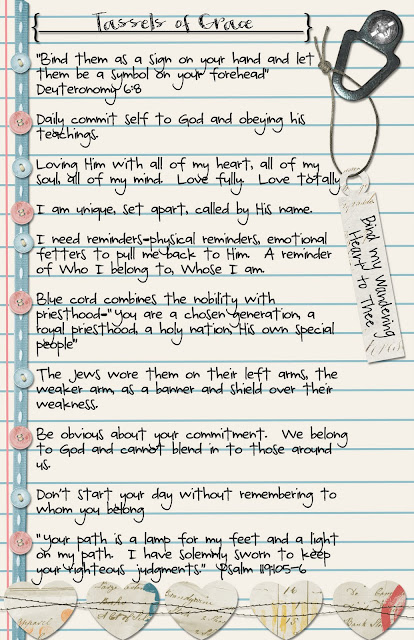 Tassels of Grace
"Bind them as a sign on your hand and let
them be a symbol on your forehead"
Deuteronomy 6:8
Daily commit self to God and obeying his
teachings.
Loving Him with all of my heart, all of my
soul, all of my mind. Love fully. Love totally
I am unique, set apart, called by His name.
I need reminders-physical reminders, emotional
fetters to pull me back to Him. A reminder
of Who I belong to, Whose I am.
Blue cord combines the nobility with
priesthood-"You are a chosen generation, a
royal priesthood, a holy nation, His own special
people"
The Jews wore them on their left arms, the
weaker arm, as a banner and shield over their
weakness.
Be obvious about your commitment. We belong
to God and cannot blend in to those around
us.
Don't start your day without remembering to
whom you belong
"Your path is a lamp for my feet and a light
on my path. I have solemnly sworn to keep
your righteous judgments." Psalm 119:105-6
Bind my Wandering
Heart to Thee